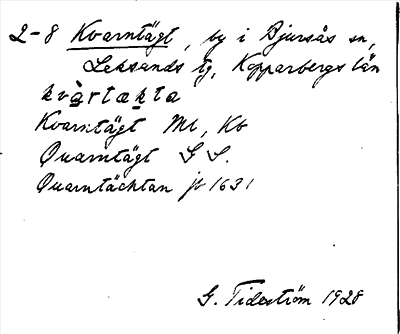 2-8 Kvarntägt, by i Bjursås sn,
Leksands tg, Kopparbergs län
kvàrtækta
Kvarntägt Mt, Kb
Quarntägt G S.
Quarntächtan jb 1631
G. Tideström 1928